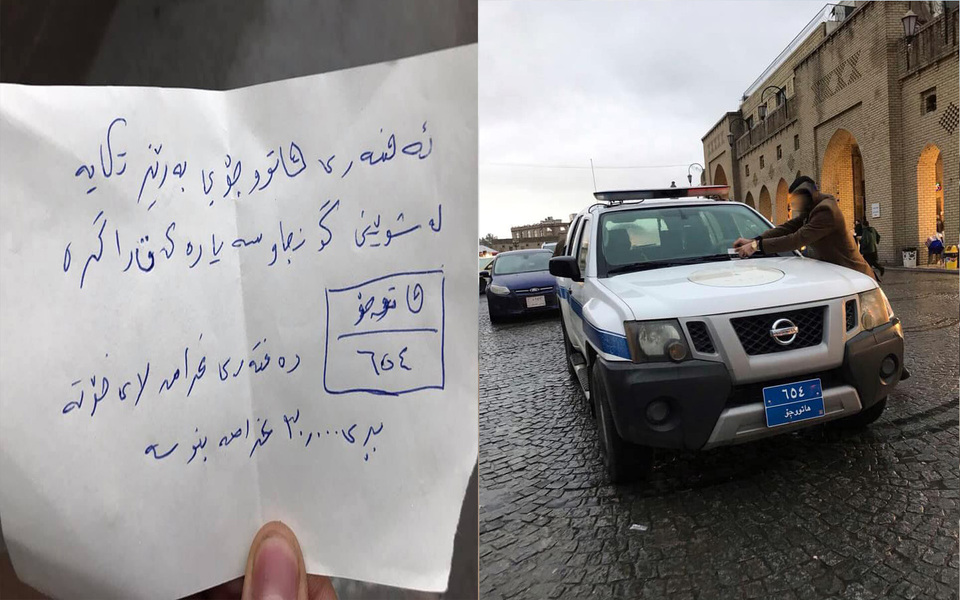 ئەفسەری هاتووچۆی بەڕێز تکایە
لە شوێنی گونجاو سەیارەی قاراگرە
هاتوچۆ
٦٥٤
دەفتەری غرامە لای خۆتە
بڕی ٣٠,٠٠٠ غرامە بنوسە
٦٥٤
هاتووچۆ